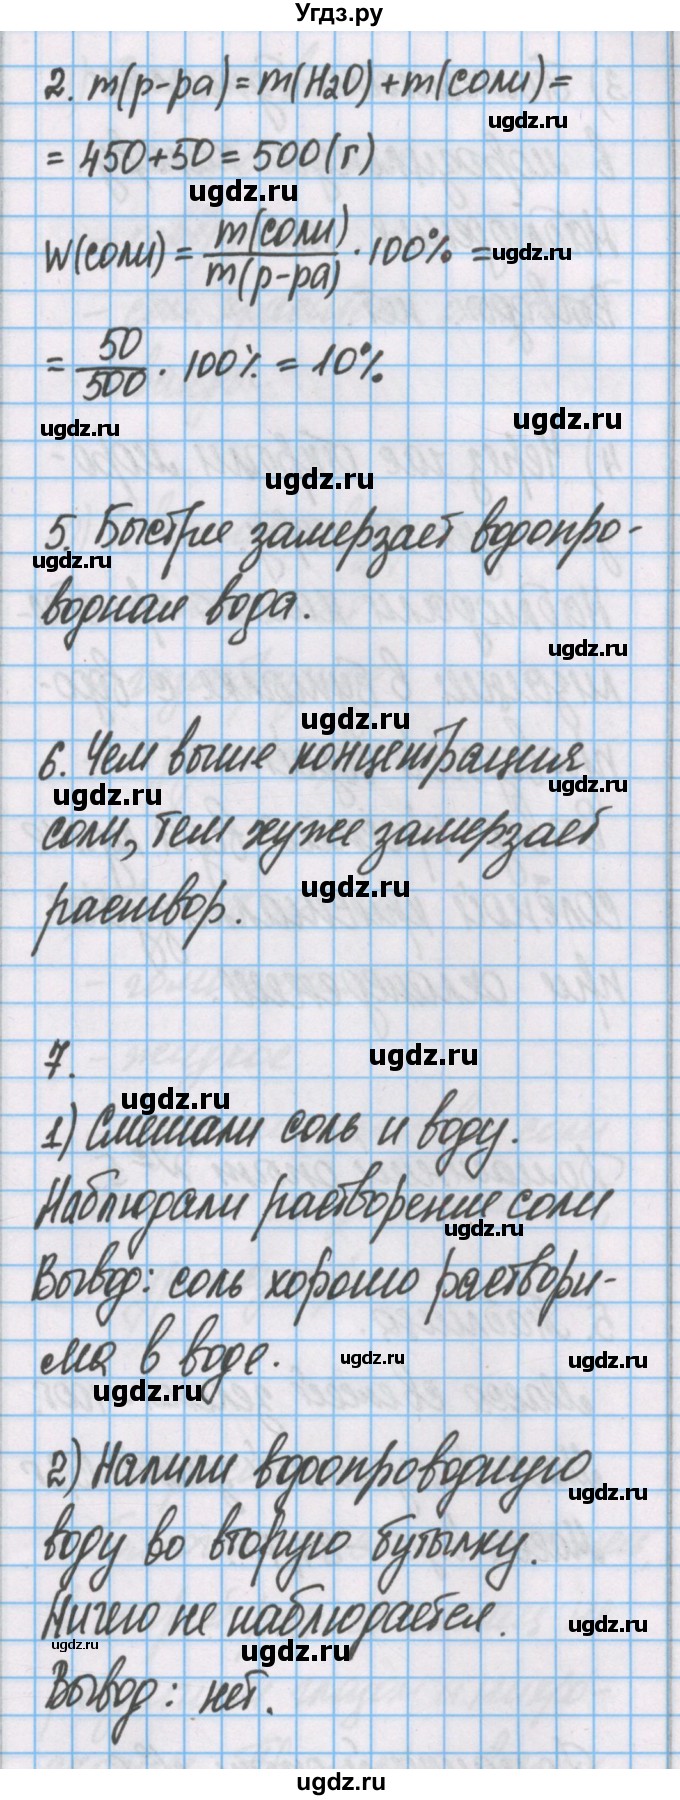 Угдз.ру
2. m(р-ра) = m(H2O) + m(соли) =
ugdz.ru
= 450 + 50 = 500 (г)
ugdz.ru
W(соли) = m(соли)/m(р-ра) · 100% =
ugdz.ru
= 50/500 · 100% = 10%
ugdz.ru ugdz.ru
ugdz.ru
5. Быстрее замерзает водопро-
ugdz.ru
водная вода.
ugdz.ru
ugdz.ru
6. Чем выше концентрация
ugdz.ru ugdz.ru
соли, тем хуже замерзает
ugdz.ru
раствор.
7.
ugdz.ru
ugdz.ru
1) Смешали соль и воду.
Наблюдали растворение соли
ugdz.ru
Вывод: соль хорошо раствори-
ма в воде.
ugdz.ru ugdz.ru
ugdz.ru
2) Налили водопроводную
ugdz.ru
воду во вторую бутылку.
Ничего не наблюдается.
ugdz.ru ugdz.ru
ugdz.ru
Вывод: нет.
ugdz.ru